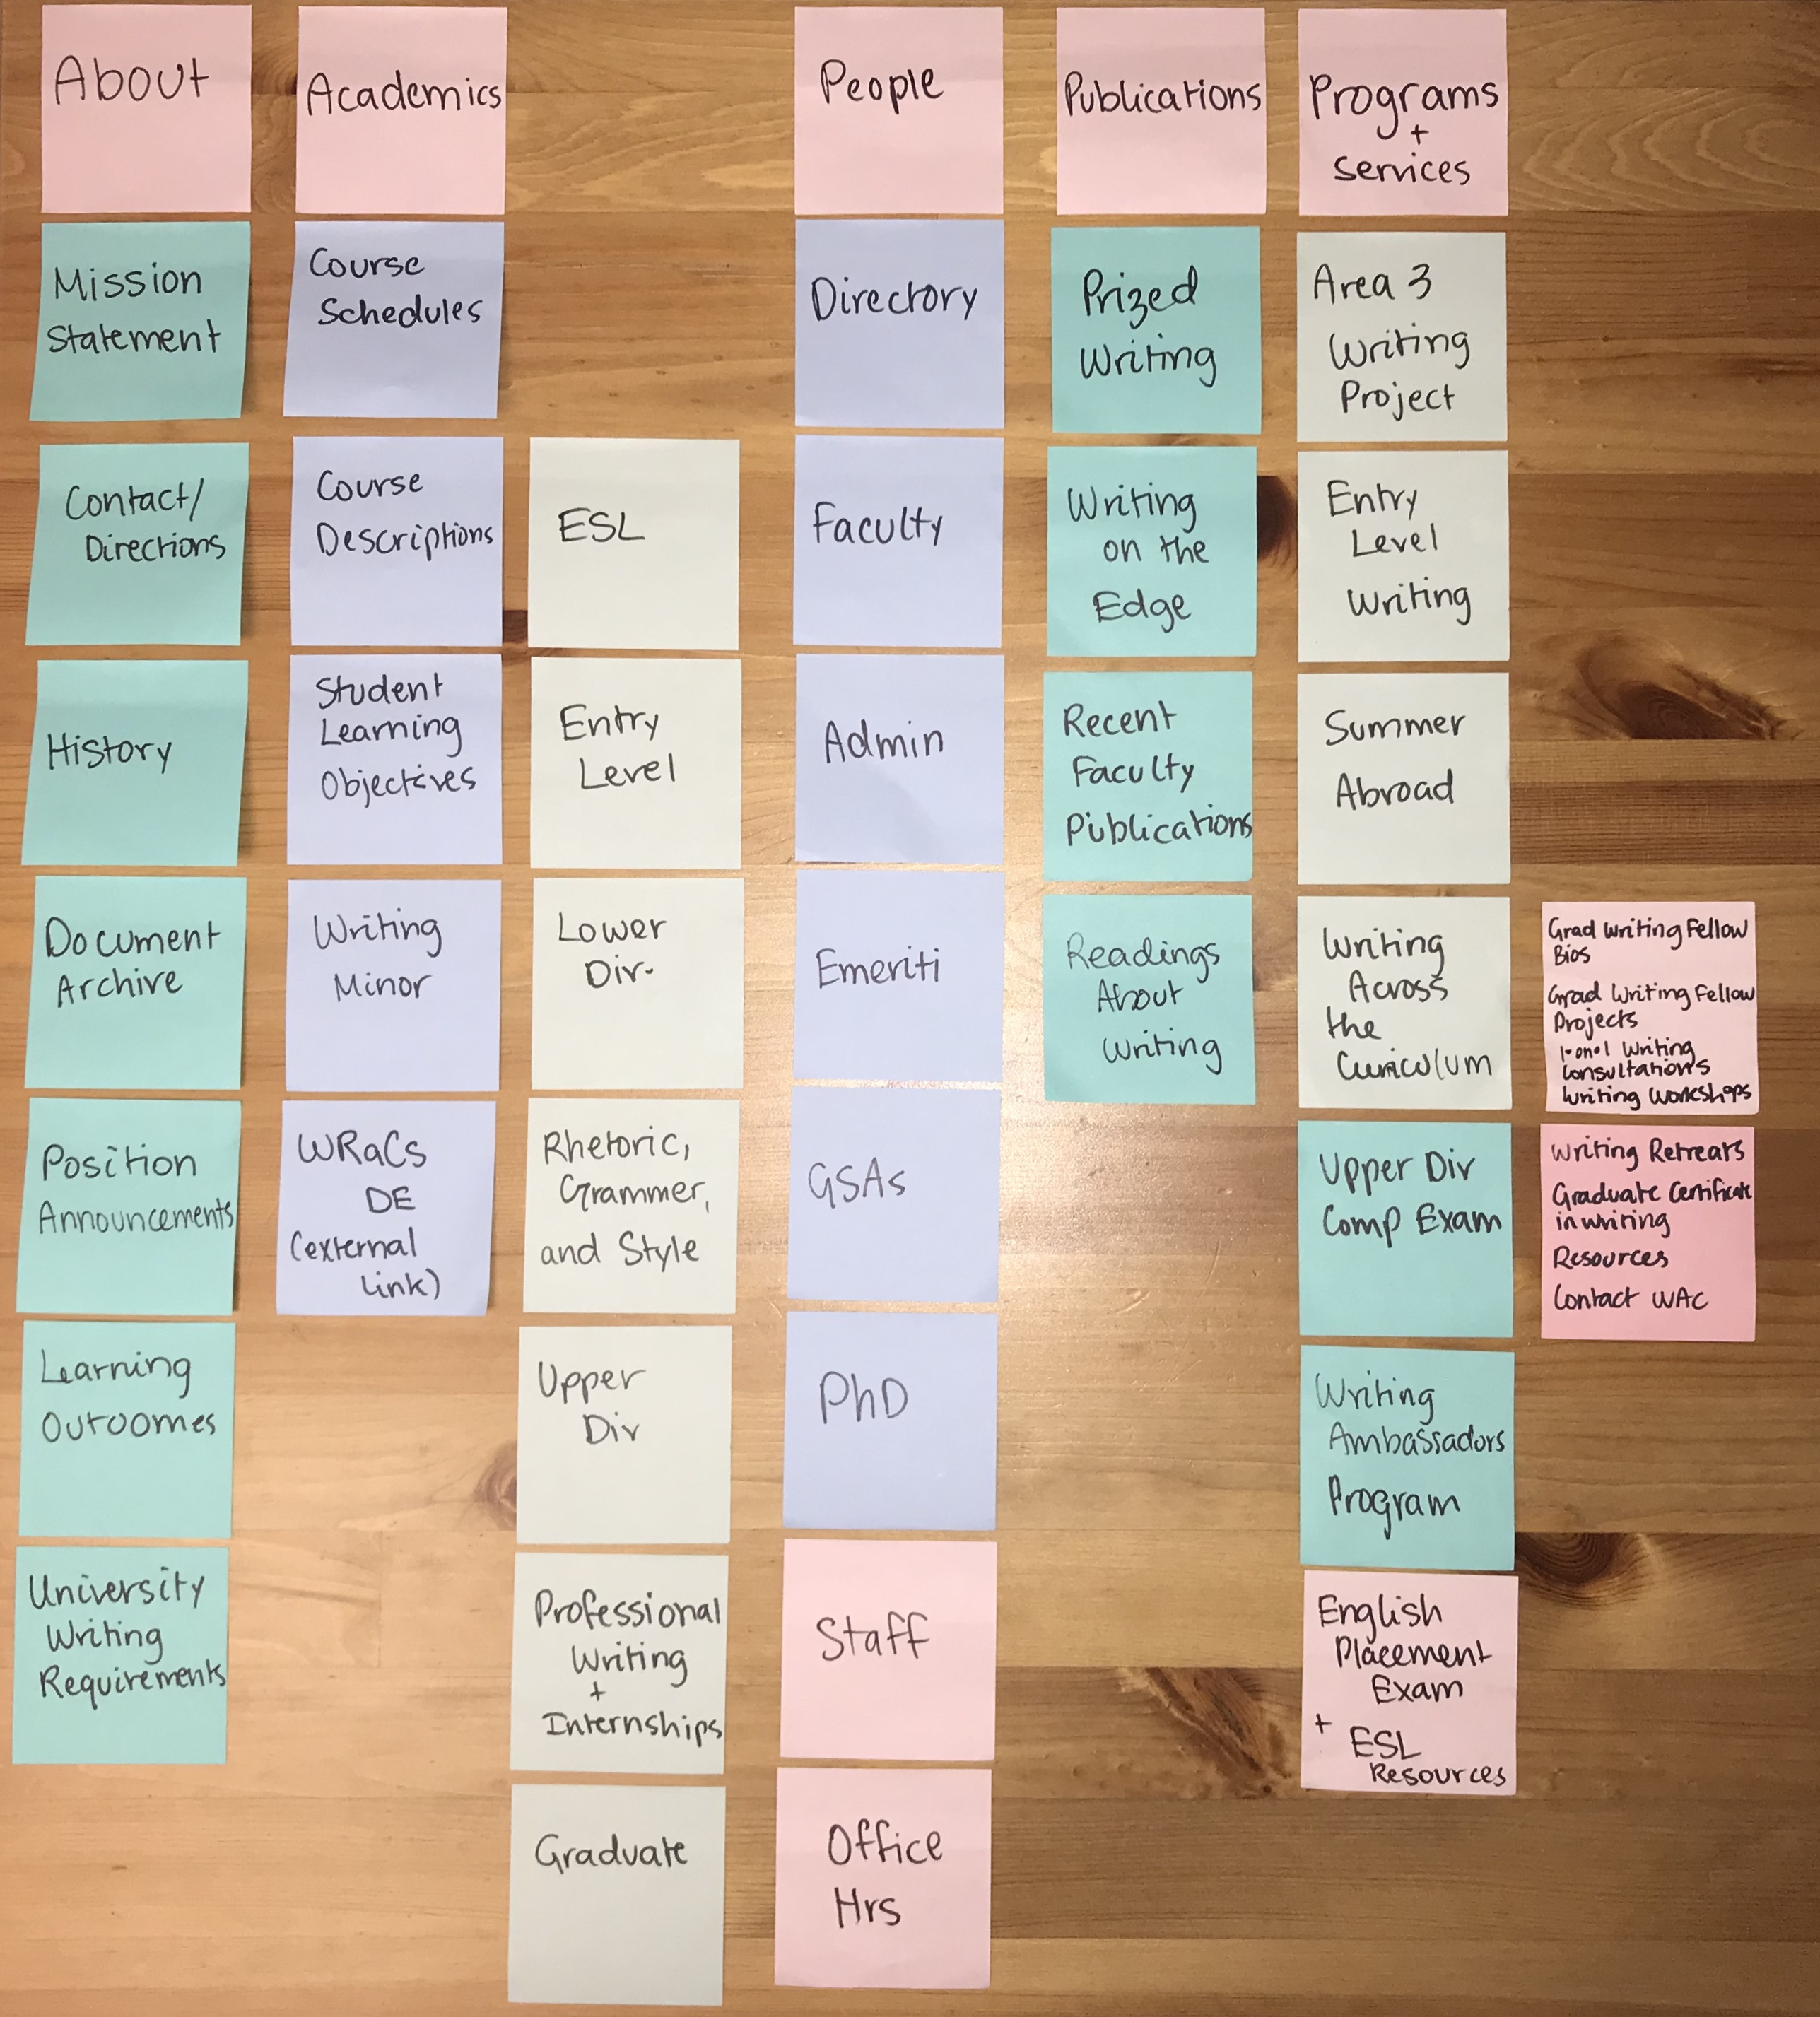 About
Mission
Statement
Contact/
Directions
History
Document
Archive
Position
Announcements
Learning
Outcomes
University
Writing
Requirements
Academics
Course
Schedules
Course
Descriptions
Student
Learning
Objectives
Writing
Minor
WRaCs
DE
(external
link)
ESL
Entry
Level
Lower
Div.
Rhetoric,
Grammer,
and Style
Upper
Div
Professional
Writing
+
Internships
Graduate
People
Directory
Faculty
Admin
Emeriti
GSAs
PhD
Staff
Office
Hrs
Publications
Prized
Writing
Writing
on the
Edge
Recent
Faculty
Publications
Readings
About
Writing
Programs
+
Services
Area 3
Writing
Project
Entry
Level
Writing
Summer
Abroad
Writing
Across
the
Curriculum
Upper Div
Comp Exam
Writing
Ambassadors
Program
English
Placement
Exam
+ ESL
Resources
Grad Writing Fellow
Bios
Grad Writing Fellow
Projects
1-on-1 Writing
Consultations
Writing Workshops
Writing Retreats
Graduate Certificate
in writing
Resources
Contact WAC